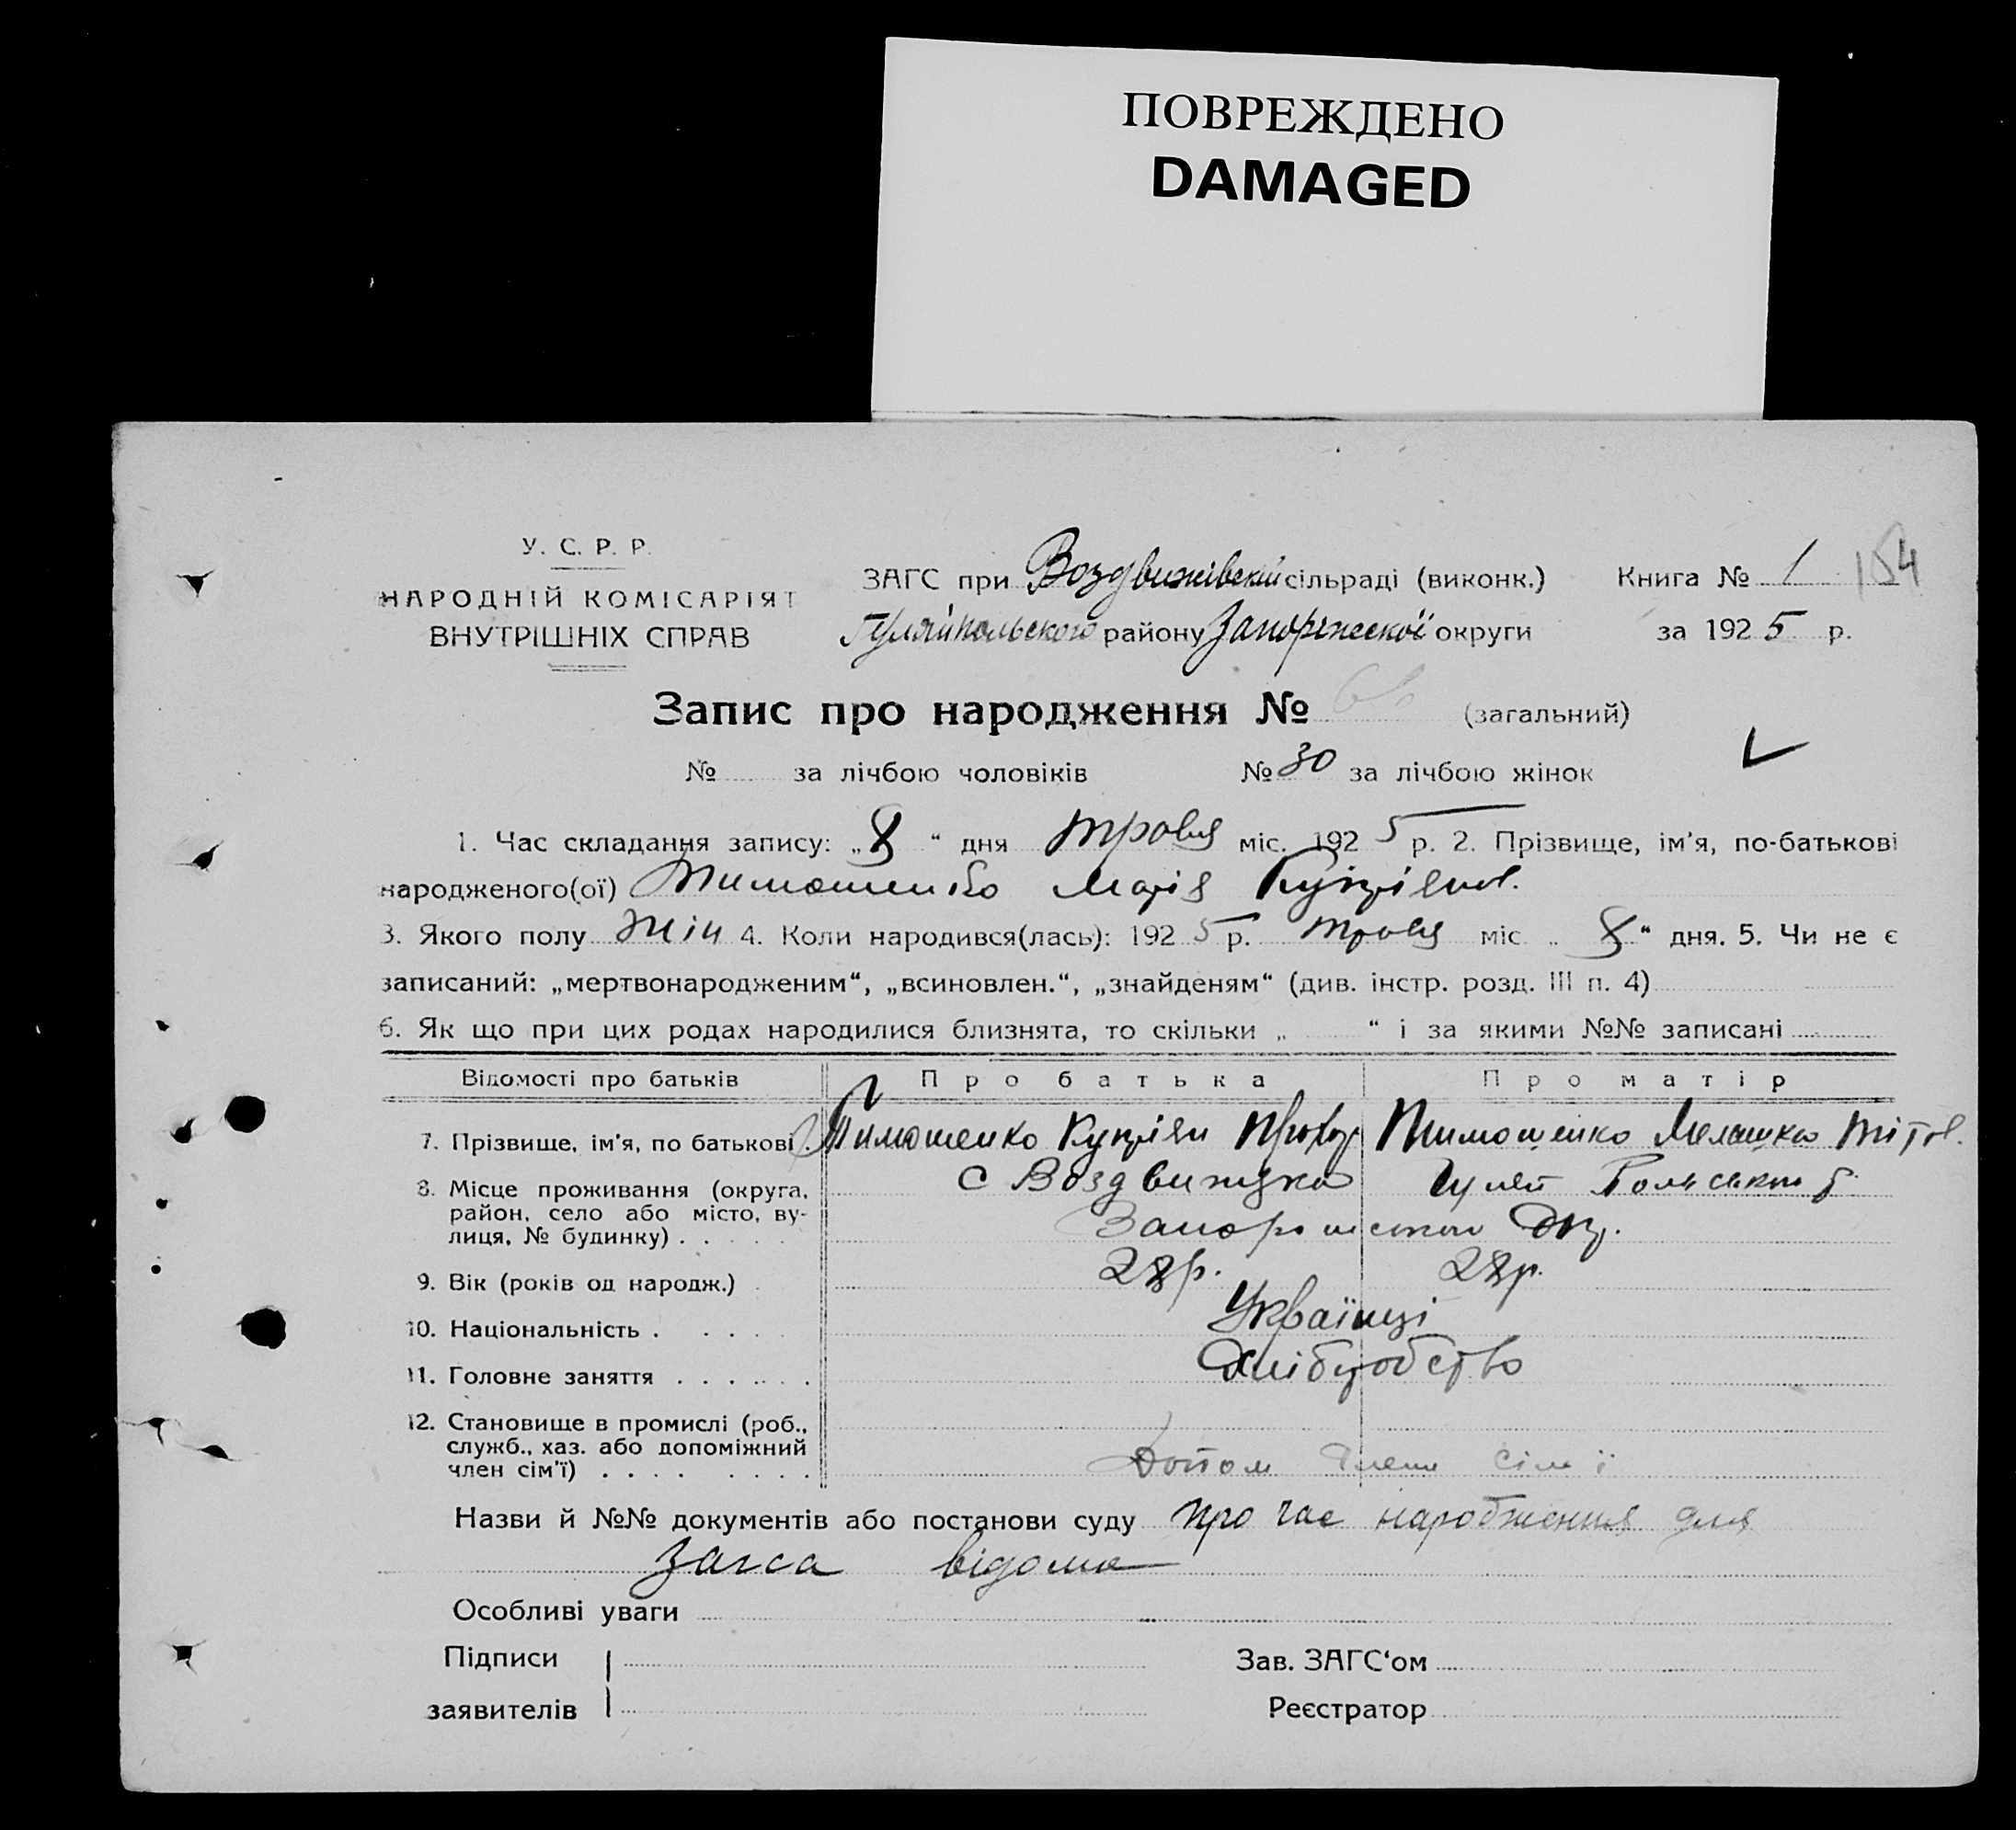 ПОВРЕЖДЕНО
DAMAGED
У. С. Р. Р.
НАРОДНІЙ КОМІСАРІЯТ
ВНУТРІШНІХ СПРАВ
ЗАГС при Воздвижівській сільраді (виконк.) Книга № 1 154
Гуляйпольського району Запоріжської округи за 1925 р.
Запис про народження № (загальний)
№ за лічбою чоловіків № 30 за лічбою жінок
1. Час складання запису: „8“ дня травня міс. 1925 р. 2. Прізвище, ім'я, по-батькові
народженого(ої) Тимошенко Марія Купріянов.
3. Якого полу жін 4. Коли народився(лась): 1925 р. травня міс. „8“ дня. 5. Чи не є
записаний: „мертвонародженим“, „всиновлен.“, „знайденям“ (див. інстр. розд. III п. 4)
6. Як що при цих родах народилися близнята, то скільки „ “ і за якими №№ записані
Відомості про батьків Про батька Про матір
7. Прізвище, ім'я, по батькові . Тимошенко Купріян Прохор Тимошенко Мелашка Тіт
8. Місце проживання (округа, с Воздвижка Гуляй Польськ р.
район, село або місто, ву-
лиця, № будинку) . . . . . Запоріжської Окр.
9. Вік (років од народж.) . 28р. 28р.
10. Національність . . . . . Українці
11. Головне заняття . . . . . . Хлібробство
12. Становище в промислі (роб.,
служб., хаз. або допоміжний
член сім'ї) . . . . . . . . Допом член сім ї
Назви й №№ документів або постанови суду про час народження для
загса відомо
Особливі уваги
Підписи
заявителів
Зав. ЗАГС‘ом
Реєстратор